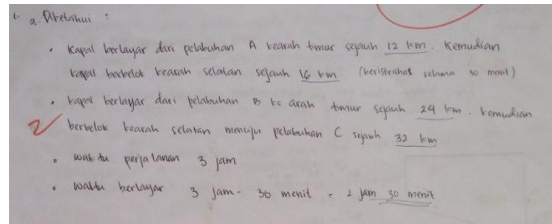 1. a. Diketahui :
• Kapal berlayar dari pelabuhan A kearah timur sejauh 12 km. Kemudian
kapal berbelok kearah selatan sejauh 16 km (beristirahat selama 30 menit)
• kapal berlayar dari pelabuhan B ke arah timur sejauh 24 km. kemudian
2 berbelok kearah selatan menuju pelabuhan C sejauh 32 km
• waktu perjalanan 3 jam
• waktu berlayar 3 jam - 30 menit = 2 jam 30 menit